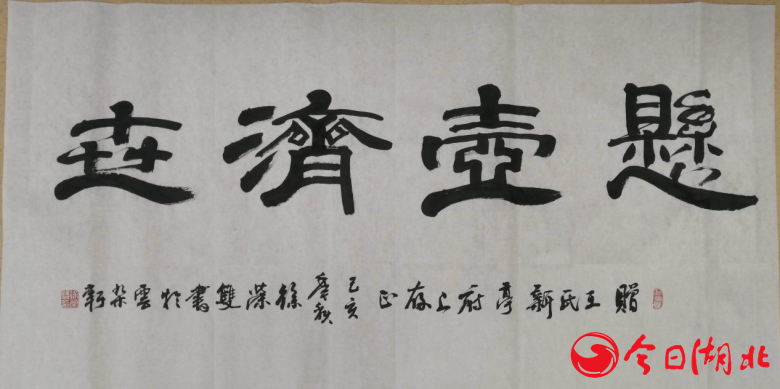 懸壺濟世
贈王氏新亭府上存正己亥季秋徐榮雙書於雲朵軒
今日湖北